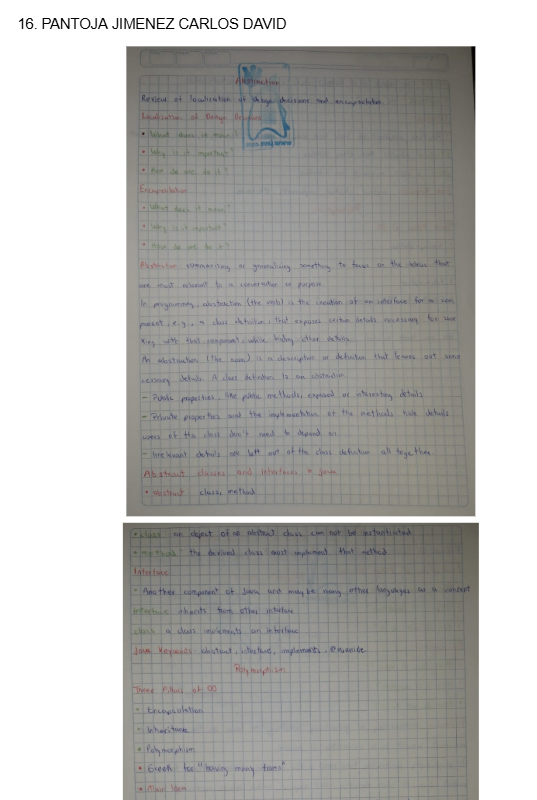 16. PANTOJA JIMENEZ CARLOS DAVID
Abstraction
Review of localization of design decisions and encapsulation
Localization of Design Decisions
• What does it mean?
• Why is it important?
• How do we do it?
Encapsulation
• What does it mean?
• Why is it important?
• How do we do it?
Abstraction summarising or generalising something to focus on the ideas that
are most relevant to a conversation or purpose
In programming, abstraction (the verb) is the creation of an interface for a com
ponent, e.g., a class definition, that exposes certain details necessary for wor
king with that component while hiding other details.
An abstraction (the noun) is a description or definition that leaves out some
necessary details. A class definition is an abstraction
- Public properties, like public methods, exposed or interesting details
- Private properties and the implementation of the methods hide details
users of the class don't need to depend on
- Irrelevant details are left out of the class definition all together.
Abstract classes and interfaces in Java
• abstract class, method
• class an object of an abstract class can not be instantiated
• method the derived class must implement that method
Interface
- Another component of Java and maybe many other languages as a concept
interface inherits from other interface
class a class implements an interface
Java Keywords abstract, interface, implements, @Override
Polymorphism
Three Pillars of OO
- Encapsulation
- Inheritance
• Polymorphism
• Greek for "having many forms"
• Main Idea